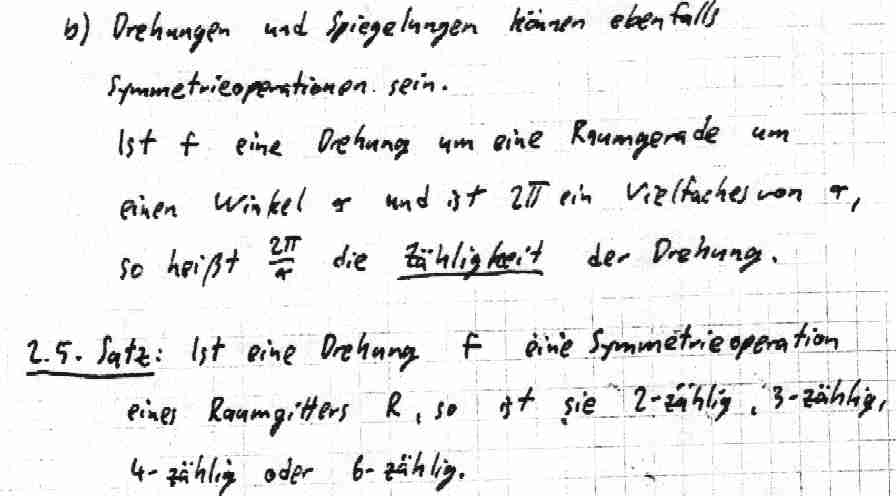 b) Drehungen und Spiegelungen können ebenfalls
Symmetrieoperationen sein.
Ist f eine Drehung um eine Raumgerade um
einen Winkel α und ist 2π ein Vielfaches von α,
so heißt 2π/α die Zähligkeit der Drehung.
2.5. Satz: Ist eine Drehung f eine Symmetrieoperation
eines Raumgitters R, so ist sie 2-zählig, 3-zählig,
4-zählig oder 6-zählig.